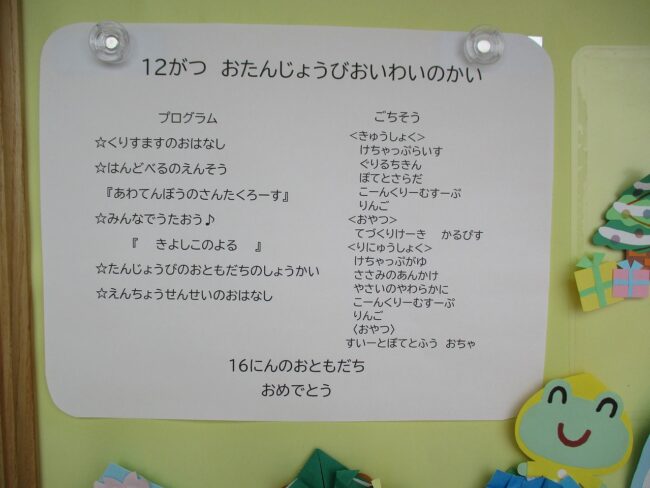 12がつ　おたんじょうびおいわいのかい
プログラム
☆くりすますのおはなし
☆はんどべるのえんそう
『あわてんぼうのさんたくろーす』
☆みんなでうたおう♪
『　きよしこのよる　』
☆たんじょうびのおともだちのしょうかい
☆えんちょうせんせいのおはなし
ごちそう
<きゅうしょく>
けちゃっぷらいす
ぐりるちきん
ぽてとさらだ
こーんくりーむすーぷ
りんご
<おやつ>
てづくりけーき　かるぴす
<りにゅうしょく>
けちゃっぷがゆ
ささみのあんかけ
やさいのやわらかに
こーんくりーむすーぷ
りんご
〈おやつ〉
すいーとぽてとふう　おちゃ
16にんのおともだち
おめでとう